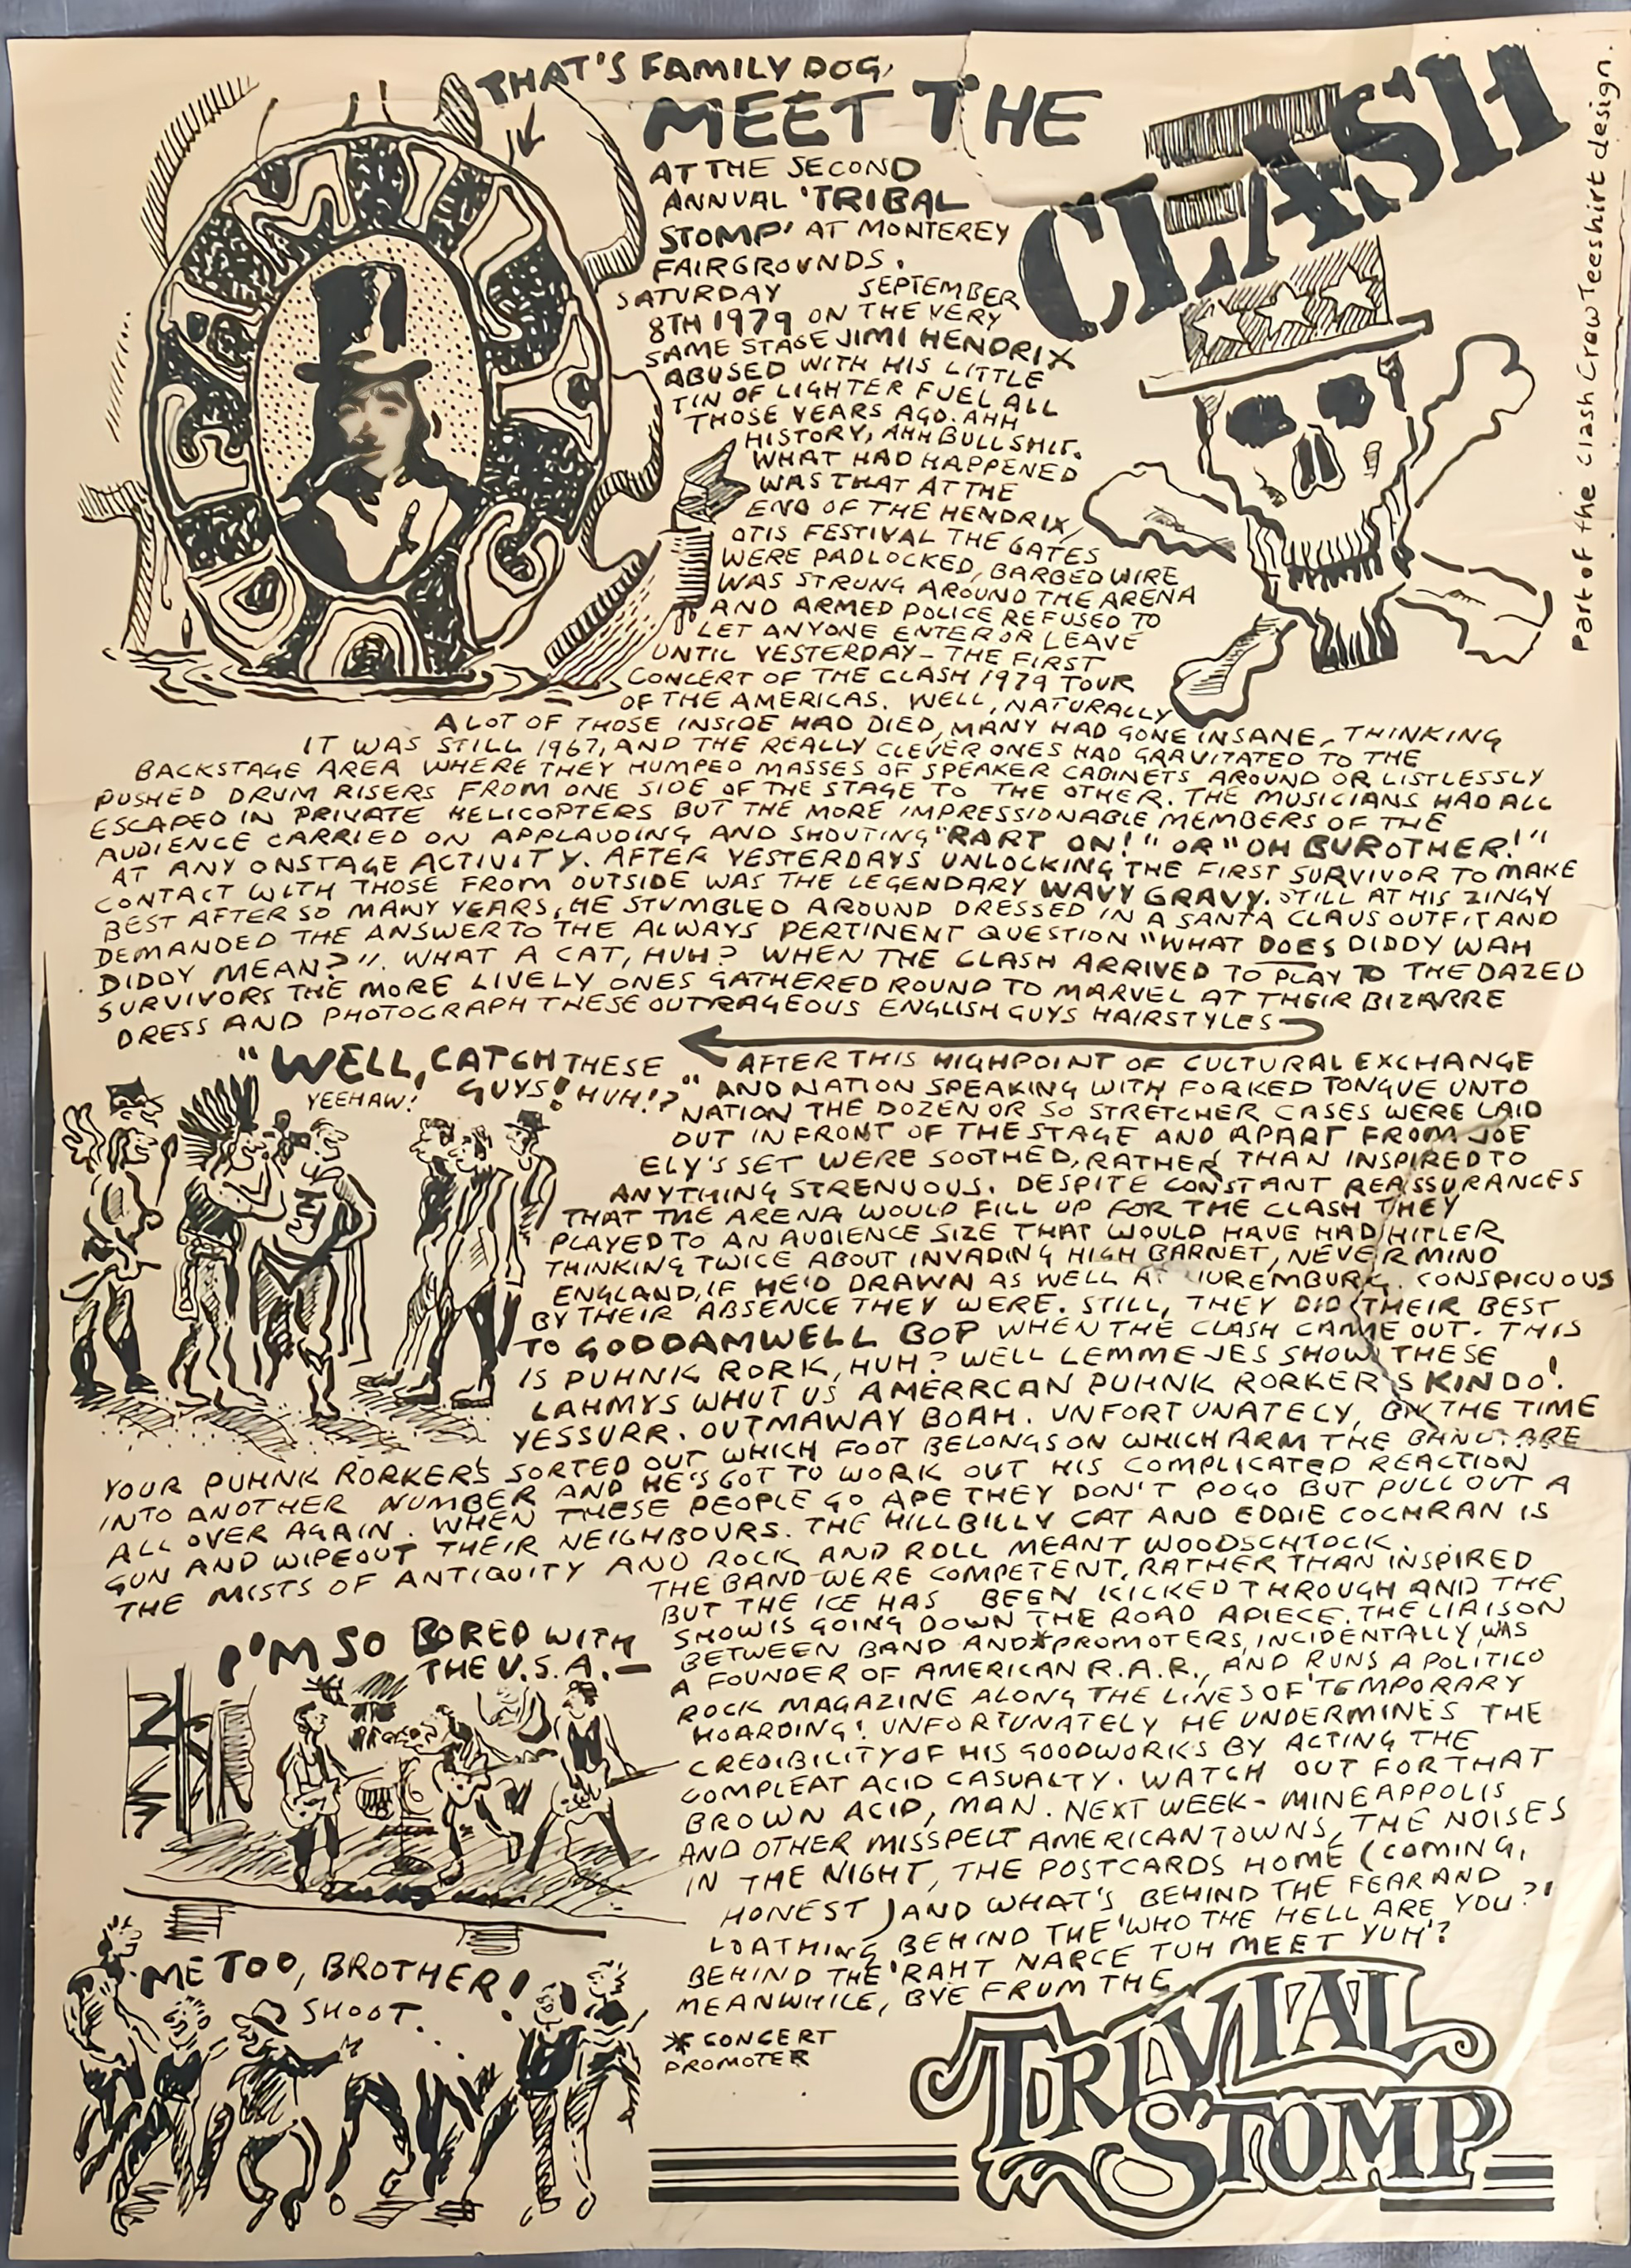 THAT'S FAMILY DOG,
MEET THE
CLASH
AT THE SECOND
ANNUAL 'TRIBAL
STOMP' AT MONTEREY
FAIRGROUNDS.
SATURDAY SEPTEMBER
8TH 1979 ON THE VERY
SAME STAGE JIMI HENDRIX
ABUSED WITH HIS LITTLE
TIN OF LIGHTER FUEL ALL
THOSE YEARS AGO. AHH
HISTORY, AHH BULLSHIT.
WHAT HAD HAPPENED
WAS THAT AT THE
END OF THE HENDRIX/
OTIS FESTIVAL THE GATES
WERE PADLOCKED, BARBED WIRE
WAS STRUNG AROUND THE ARENA
AND ARMED POLICE REFUSED TO
LET ANYONE ENTER OR LEAVE
UNTIL YESTERDAY - THE FIRST
CONCERT OF THE CLASH 1979 TOUR
OF THE AMERICAS. WELL, NATURALLY
A LOT OF THOSE INSIDE HAD DIED, MANY HAD GONE INSANE, THINKING
IT WAS STILL 1967, AND THE REALLY CLEVER ONES HAD GRAVITATED TO THE
BACKSTAGE AREA WHERE THEY HUMPED MASSES OF SPEAKER CABINETS AROUND OR LISTLESSLY
PUSHED DRUM RISERS FROM ONE SIDE OF THE STAGE TO THE OTHER. THE MUSICIANS HAD ALL
ESCAPED IN PRIVATE HELICOPTERS BUT THE MORE IMPRESSIONABLE MEMBERS OF THE
AUDIENCE CARRIED ON APPLAUDING AND SHOUTING "RART ON!" OR "OH BUROTHER!"
AT ANY ONSTAGE ACTIVITY. AFTER YESTERDAYS UNLOCKING THE FIRST SURVIVOR TO MAKE
CONTACT WITH THOSE FROM OUTSIDE WAS THE LEGENDARY WAVY GRAVY. STILL AT HIS ZINGY
BEST AFTER SO MANY YEARS, HE STUMBLED AROUND DRESSED IN A SANTA CLAUS OUTFIT AND
DEMANDED THE ANSWER TO THE ALWAYS PERTINENT QUESTION "WHAT DOES DIDDY WAH
DIDDY MEAN?". WHAT A CAT, HUH? WHEN THE CLASH ARRIVED TO PLAY TO THE DAZED
SURVIVORS THE MORE LIVELY ONES GATHERED ROUND TO MARVEL AT THEIR BIZARRE
DRESS AND PHOTOGRAPH THESE OUTRAGEOUS ENGLISH GUYS HAIRSTYLES
"WELL, CATCH THESE
GUYS! HUH!?"
YEEHAW!
AFTER THIS HIGHPOINT OF CULTURAL EXCHANGE
AND NATION SPEAKING WITH FORKED TONGUE UNTO
NATION THE DOZEN OR SO STRETCHER CASES WERE LAID
OUT IN FRONT OF THE STAGE AND APART FROM JOE
ELY'S SET WERE SOOTHED, RATHER THAN INSPIRED TO
ANYTHING STRENUOUS. DESPITE CONSTANT REASSURANCES
THAT THE ARENA WOULD FILL UP FOR THE CLASH THEY
PLAYED TO AN AUDIENCE SIZE THAT WOULD HAVE HAD HITLER
THINKING TWICE ABOUT INVADING HIGH BARNET, NEVER MIND
ENGLAND, IF HE'D DRAWN AS WELL AT NUREMBURG. CONSPICUOUS
BY THEIR ABSENCE THEY WERE. STILL, THEY DID THEIR BEST
TO GODDAMWELL BOP WHEN THE CLASH CAME OUT. THIS
IS PUHNK RORK, HUH? WELL LEMME JES SHOW THESE
LAHMYS WHUT US AMERRCAN PUHNK RORKER'S KIN DO!
YESSURR. OUTMAWAY BOAH. UNFORTUNATELY, BY THE TIME
YOUR PUHNK RORKER'S SORTED OUT WHICH FOOT BELONGS ON WHICH ARM THE BAND ARE
INTO ANOTHER NUMBER AND HE'S GOT TO WORK OUT HIS COMPLICATED REACTION
ALL OVER AGAIN. WHEN THESE PEOPLE GO APE THEY DON'T POGO BUT PULL OUT A
GUN AND WIPEOUT THEIR NEIGHBOURS. THE HILLBILLY CAT AND EDDIE COCHRAN IS
THE MISTS OF ANTIQUITY AND ROCK AND ROLL MEANT WOODSCHTOCK.
THE BAND WERE COMPETENT, RATHER THAN INSPIRED
BUT THE ICE HAS BEEN KICKED THROUGH AND THE
SHOW IS GOING DOWN THE ROAD APIECE. THE LIAISON
BETWEEN BAND AND *PROMOTERS, INCIDENTALLY, WAS
A FOUNDER OF AMERICAN R.A.R., AND RUNS A POLITICO
ROCK MAGAZINE ALONG THE LINES OF 'TEMPORARY
HOARDING! UNFORTUNATELY HE UNDERMINES THE
CREDIBILITY OF HIS GOODWORKS BY ACTING THE
COMPLEAT ACID CASUALTY. WATCH OUT FOR THAT
BROWN ACID, MAN. NEXT WEEK - MINEAPPOLIS
AND OTHER MISSPELT AMERICAN TOWNS, THE NOISES
IN THE NIGHT, THE POSTCARDS HOME (COMING,
HONEST) AND WHAT'S BEHIND THE FEAR AND
LOATHING BEHIND THE 'WHO THE HELL ARE YOU?'
BEHIND THE 'RAHT NARCE TUH MEET YUH'?
MEANWHILE, BYE FRUM THE
TRIVIAL
STOMP
* CONCERT
PROMOTER
I'M SO BORED WITH
THE U.S.A. —
ME TOO, BROTHER!
SHOOT.
Part of the Clash Crew Teeshirt design.